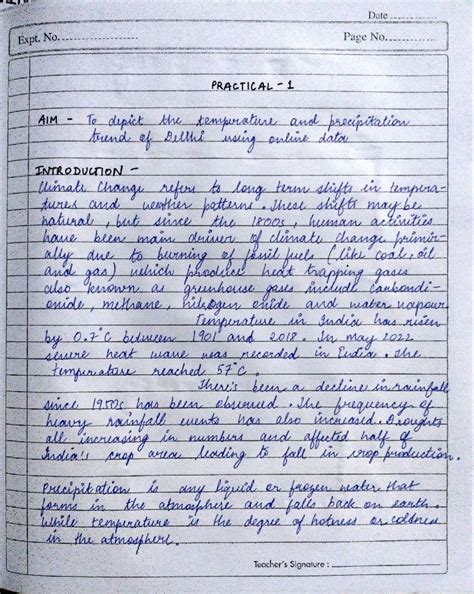 Date
Expt. No.
Page No.
PRACTICAL - 1
AIM - To depict the temperature and precipitation
trend of Delhi using online data
INTRODUCTION -
Climate Change refers to long term shifts in tempera-
tures and weather patterns. These shifts may be
natural, but since the 1800s, human activities
have been main driver of climate change primir-
ally due to burning of fossil fuels (like coal, oil
and gas) which produces heat trapping gases
also known as greenhouse gases include carbondi-
oxide, methane, nitrogen oxide and water vapour
Temperature in India has risen
by 0.7°C between 1901 and 2018. In may 2022
severe heat wave was recorded in India. The
temperature reached 57°C.
There's been a decline in rainfall
since 1950s has been observed. The frequency of
heavy rainfall events has also increased. Droughts
all increasing in numbers and affected half of
India's crop area leading to fall in crop production.
Precipitation is any liquid or frozen water that
forms in the atmosphere and falls back on earth.
While temperature is the degree of hotness or coldness
in the atmosphere.
Teacher's Signature :